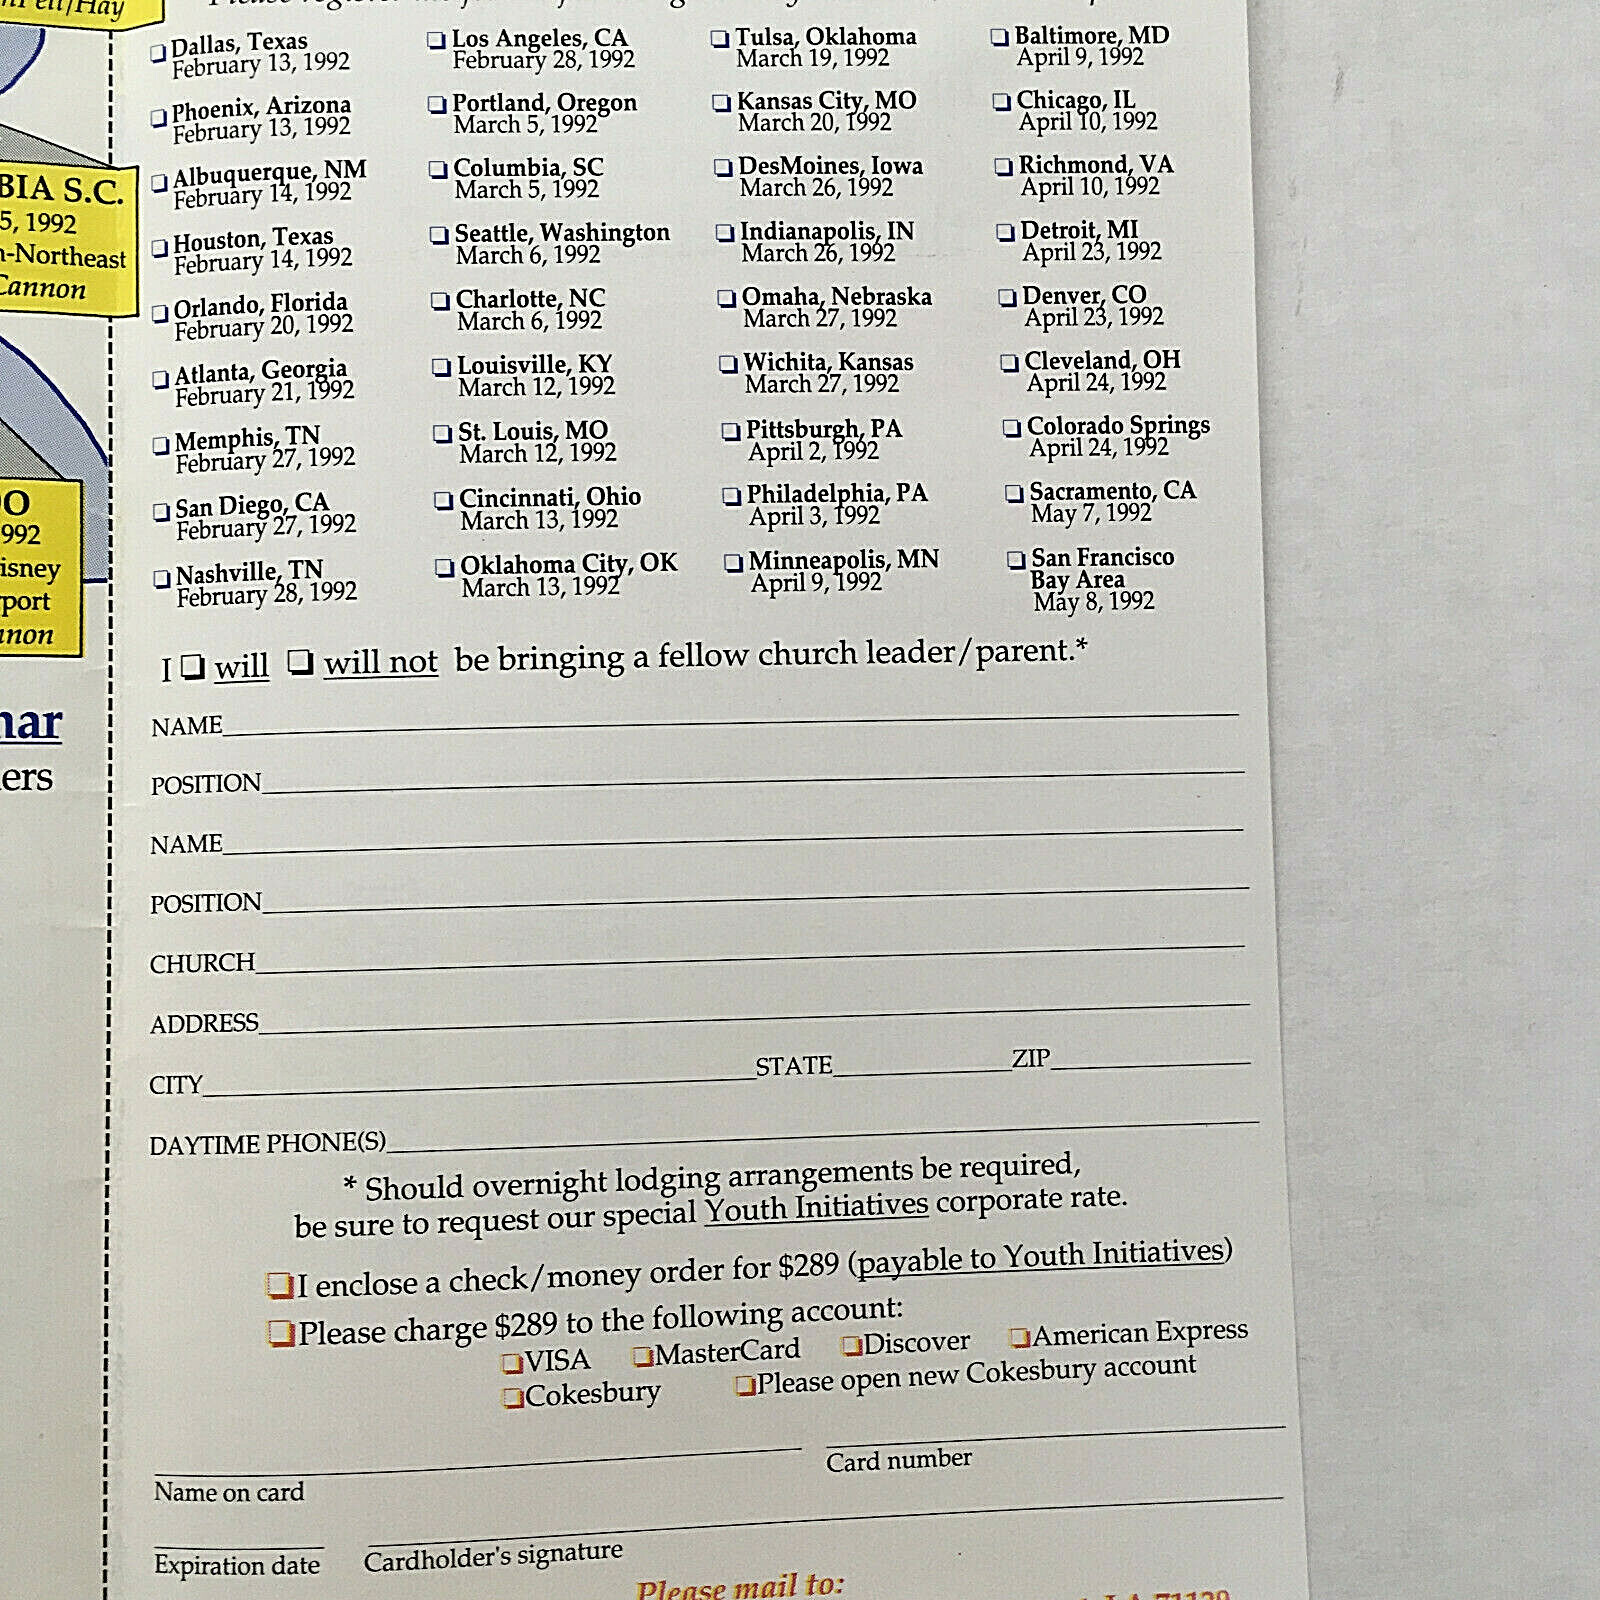 Hay
BIA S.C.
5, 1992
-Northeast
Cannon
O
992
isney
port
nnon
nar
ers
Please register
❏ Dallas, Texas
February 13, 1992
❏ Phoenix, Arizona
February 13, 1992
❏ Albuquerque, NM
February 14, 1992
❏ Houston, Texas
February 14, 1992
❏ Orlando, Florida
February 20, 1992
❏ Atlanta, Georgia
February 21, 1992
❏ Memphis, TN
February 27, 1992
❏ San Diego, CA
February 27, 1992
❏ Nashville, TN
February 28, 1992
❏ Los Angeles, CA
February 28, 1992
❏ Portland, Oregon
March 5, 1992
❏ Columbia, SC
March 5, 1992
❏ Seattle, Washington
March 6, 1992
❏ Charlotte, NC
March 6, 1992
❏ Louisville, KY
March 12, 1992
❏ St. Louis, MO
March 12, 1992
❏ Cincinnati, Ohio
March 13, 1992
❏ Oklahoma City, OK
March 13, 1992
❏ Tulsa, Oklahoma
March 19, 1992
❏ Kansas City, MO
March 20, 1992
❏ DesMoines, Iowa
March 26, 1992
❏ Indianapolis, IN
March 26, 1992
❏ Omaha, Nebraska
March 27, 1992
❏ Wichita, Kansas
March 27, 1992
❏ Pittsburgh, PA
April 2, 1992
❏ Philadelphia, PA
April 3, 1992
❏ Minneapolis, MN
April 9, 1992
❏ Baltimore, MD
April 9, 1992
❏ Chicago, IL
April 10, 1992
❏ Richmond, VA
April 10, 1992
❏ Detroit, MI
April 23, 1992
❏ Denver, CO
April 23, 1992
❏ Cleveland, OH
April 24, 1992
❏ Colorado Springs
April 24, 1992
❏ Sacramento, CA
May 7, 1992
❏ San Francisco
Bay Area
May 8, 1992
I ❏ will ❏ will not be bringing a fellow church leader/parent.*
NAME
POSITION
NAME
POSITION
CHURCH
ADDRESS
CITY STATE ZIP
DAYTIME PHONE(S)
* Should overnight lodging arrangements be required,
be sure to request our special Youth Initiatives corporate rate.
❏ I enclose a check/money order for $289 (payable to Youth Initiatives)
❏ Please charge $289 to the following account:
❏ VISA ❏ MasterCard ❏ Discover ❏ American Express
❏ Cokesbury ❏ Please open new Cokesbury account
Name on card Card number
Expiration date Cardholder's signature
Please mail to:
LA 71129